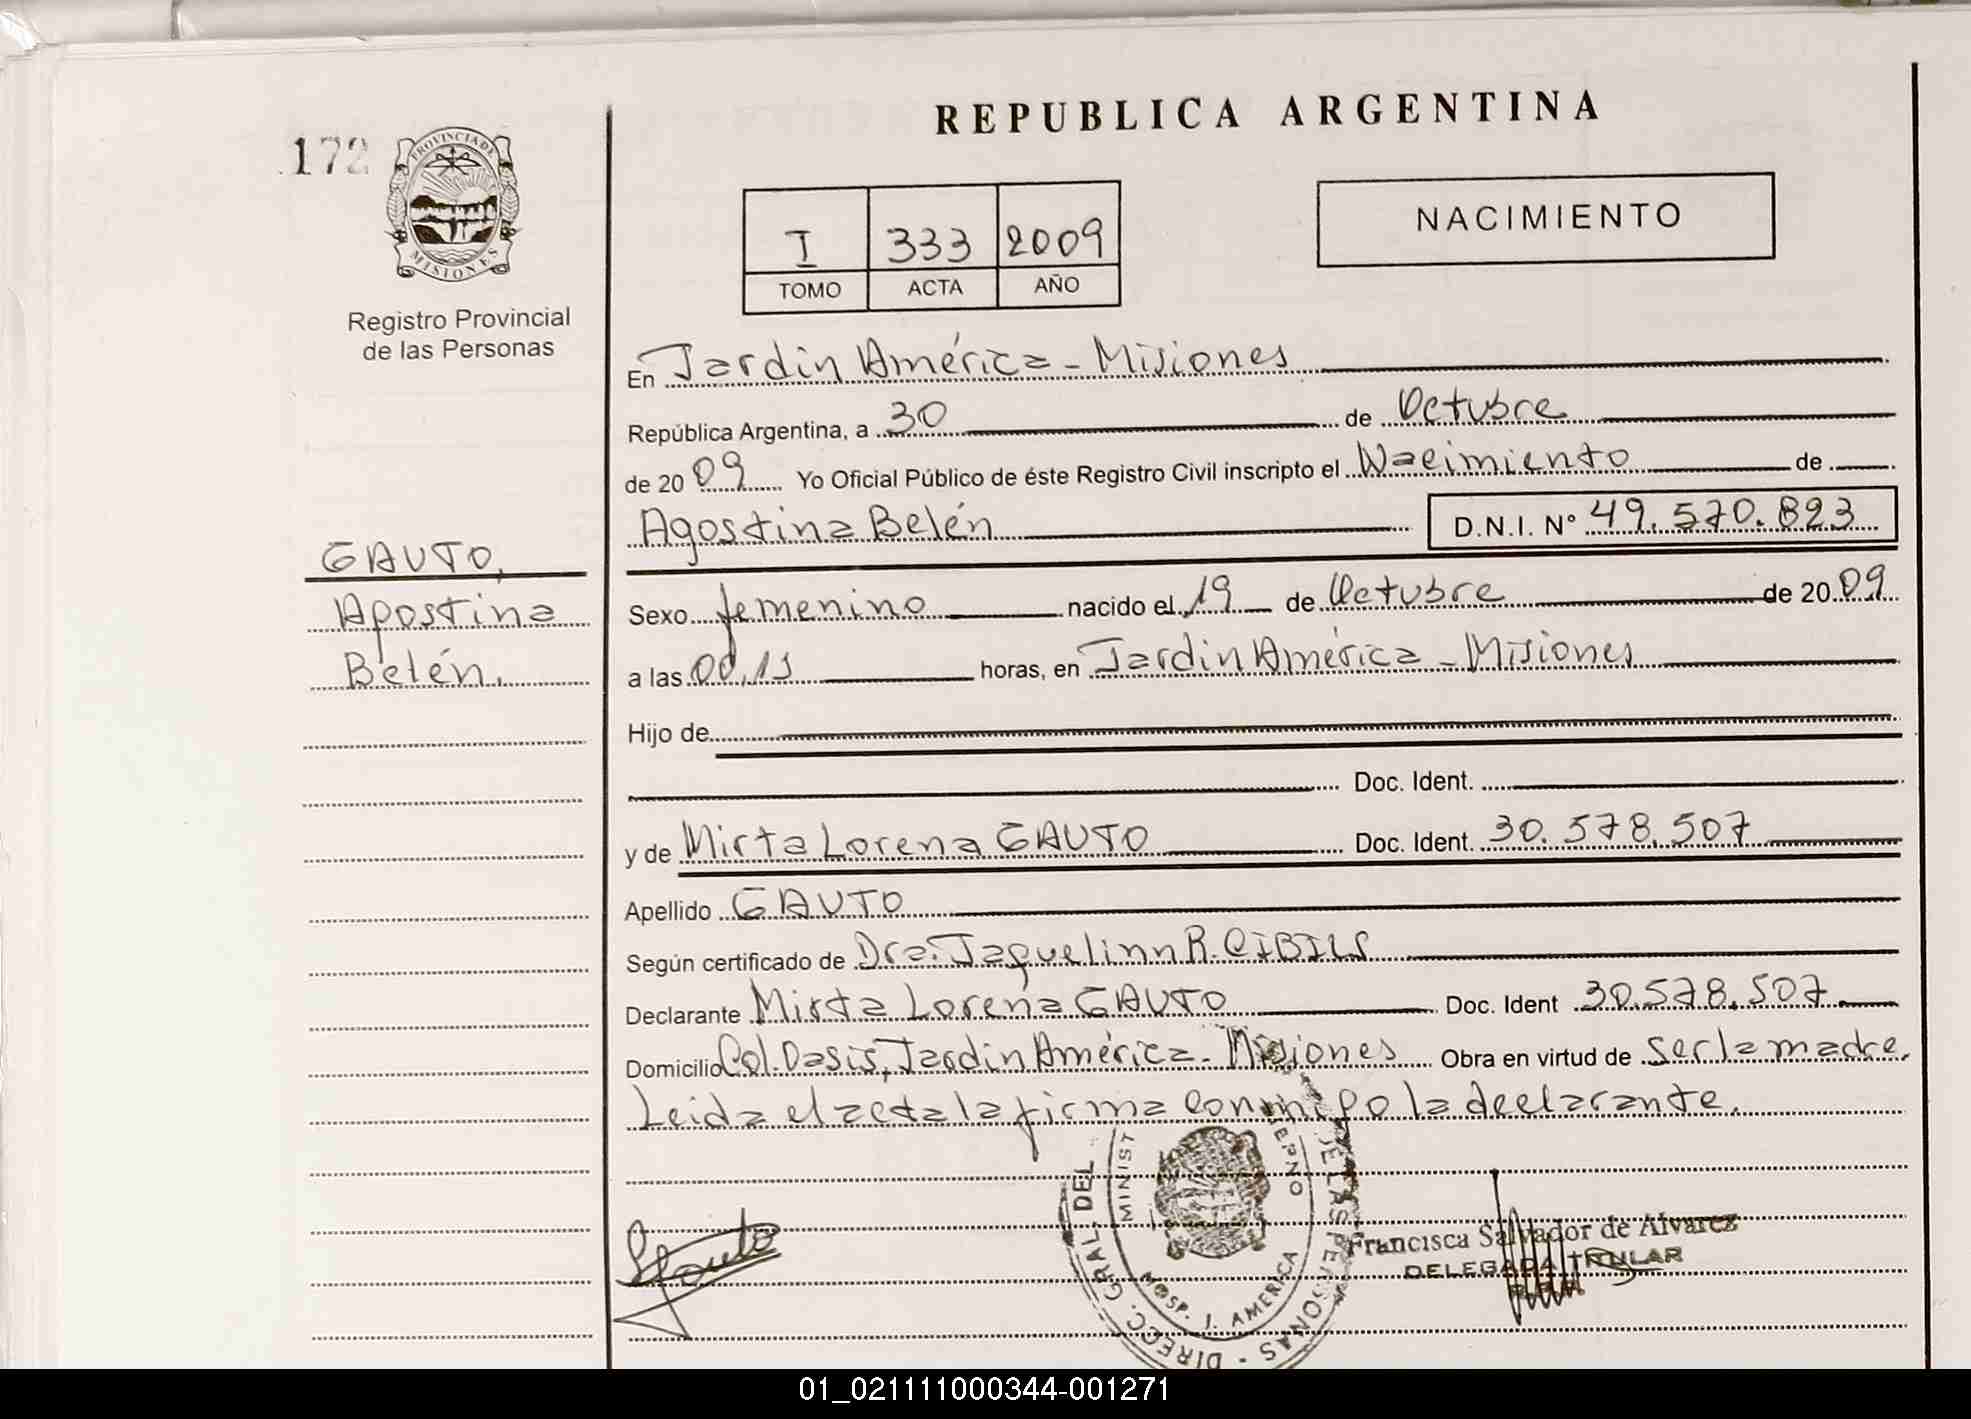 172
PROVINCIA DE
MISIONES
Registro Provincial
de las Personas
GAUTO,
Agostina
Belén.
REPUBLICA ARGENTINA
I 333 2009
TOMO ACTA AÑO
NACIMIENTO
En Jardin América - Misiones
República Argentina, a 30 de Octubre
de 2009 Yo Oficial Público de éste Registro Civil inscripto el Nacimiento de
Agostina Belén D.N.I. N° 49.570.823
Sexo femenino nacido el 19 de Octubre de 2009
a las 00,15 horas, en Jardin América - Misiones
Hijo de
Doc. Ident.
y de Mirta Lorena GAUTO Doc. Ident. 30.578.507
Apellido GAUTO
Según certificado de Dra. Jaquelinn R. CIBILS
Declarante Mirta Lorena GAUTO Doc. Ident 30.578.507
Domicilio Col. Oasis, Jardin América - Misiones Obra en virtud de ser la madre.
Leida el acta la firma conmigo la declarante.
Gauto
DIRECC. GRAL. DEL DE LAS PERSONAS
MINIST
HOSP. J. AMERICA
Francisca Salvador de Alvarez
DELEGADA TITULAR
01_021111000344-001271